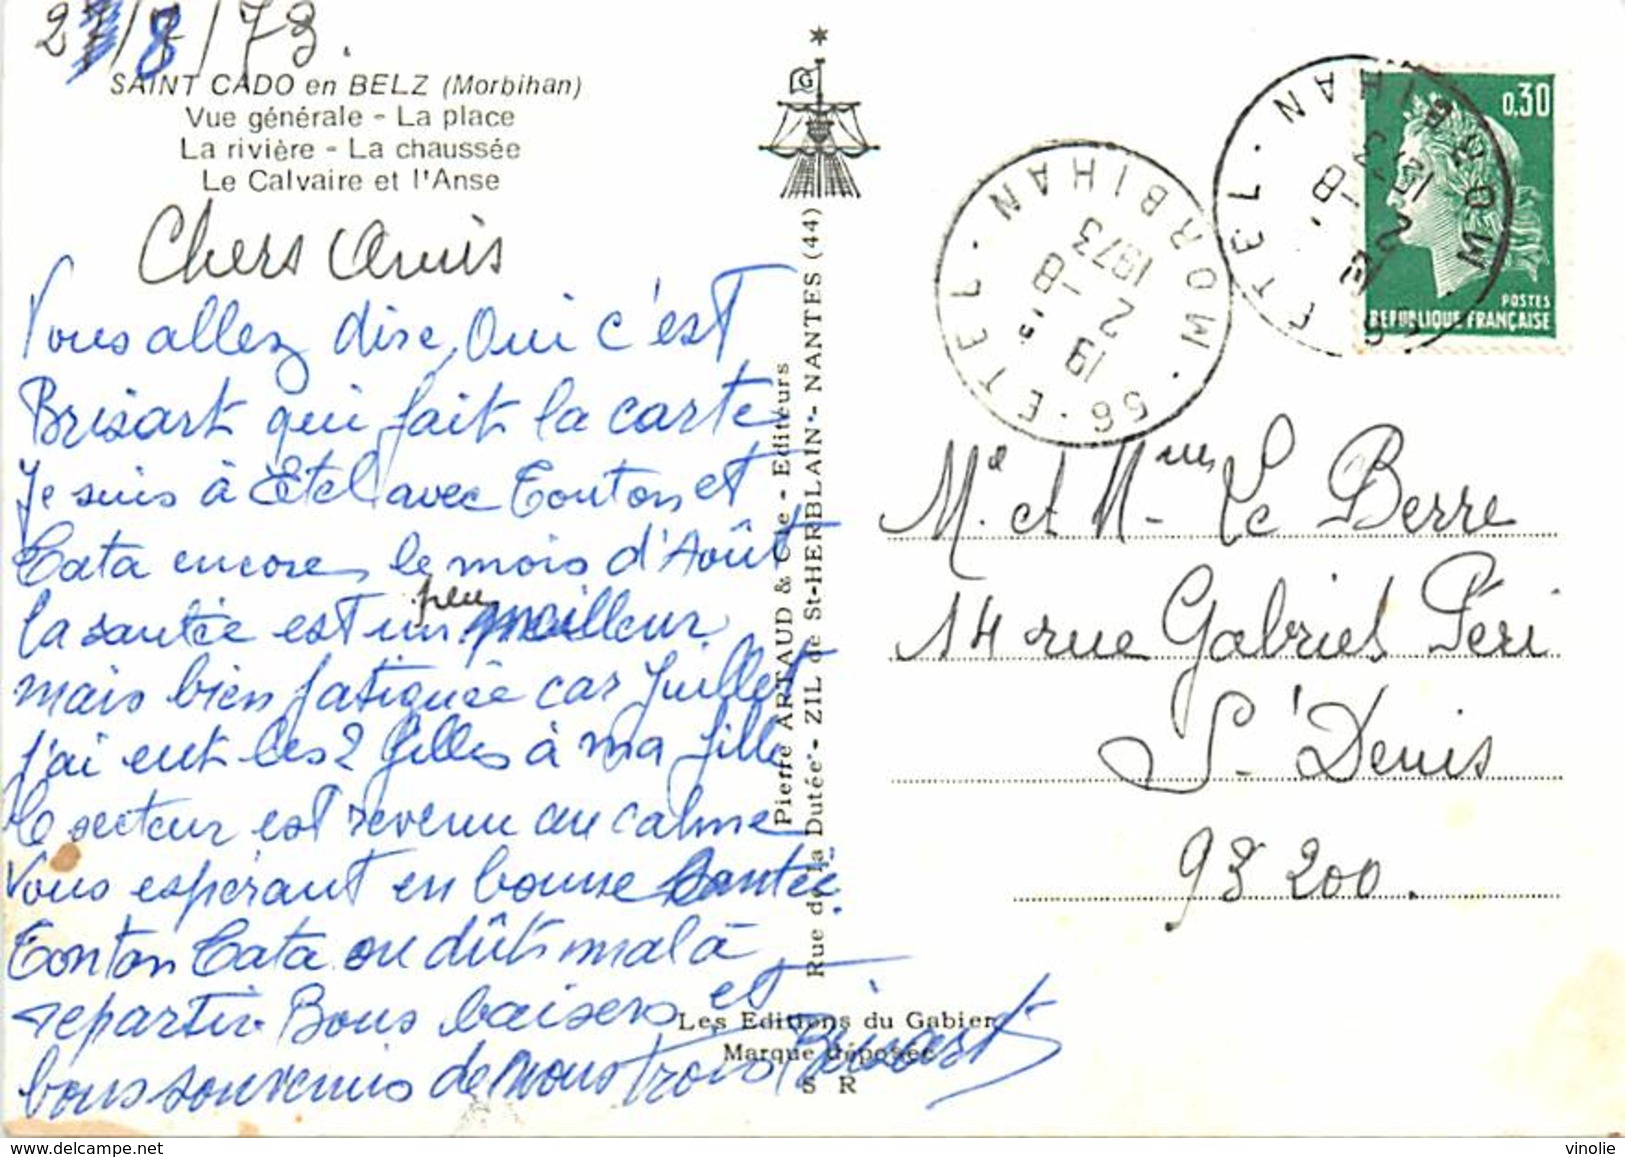 2 8/73.
SAINT CADO en BELZ (Morbihan)
Vue générale - La place
La rivière - La chaussée
Le Calvaire et l'Anse
Chers Amis
Vous allez dire, Oui c'est
Brisart qui fait la carte
Je suis à Etel avec Tonton et
Tata encore le mois d'Août
la santée est un peu meilleur
mais bien fatiguée car Juillet
j'ai eut les 2 filles à ma fille
le secteur est revenu au calme
Vous espérant en bonne santée.
Tonton Tata on dût mal à
repartir. Bons baisers et
bons souvenirs de nous trois Brisart
Pierre ARTAUD & Cie - Editeurs
Rue de la Dutée - ZIL de St-HERBLAIN - NANTES (44)
G
Les Editions du Gabier
Marque déposée
S R
56 - ETEL - MORBIHAN
19
2 -8
1973
56 ETEL - MORBIHAN
0,30
POSTES
REPUBLIQUE FRANÇAISE
Mr. et Mme Le Berre
14 rue Gabriel Péri
St Denis
93 200.
vinolie